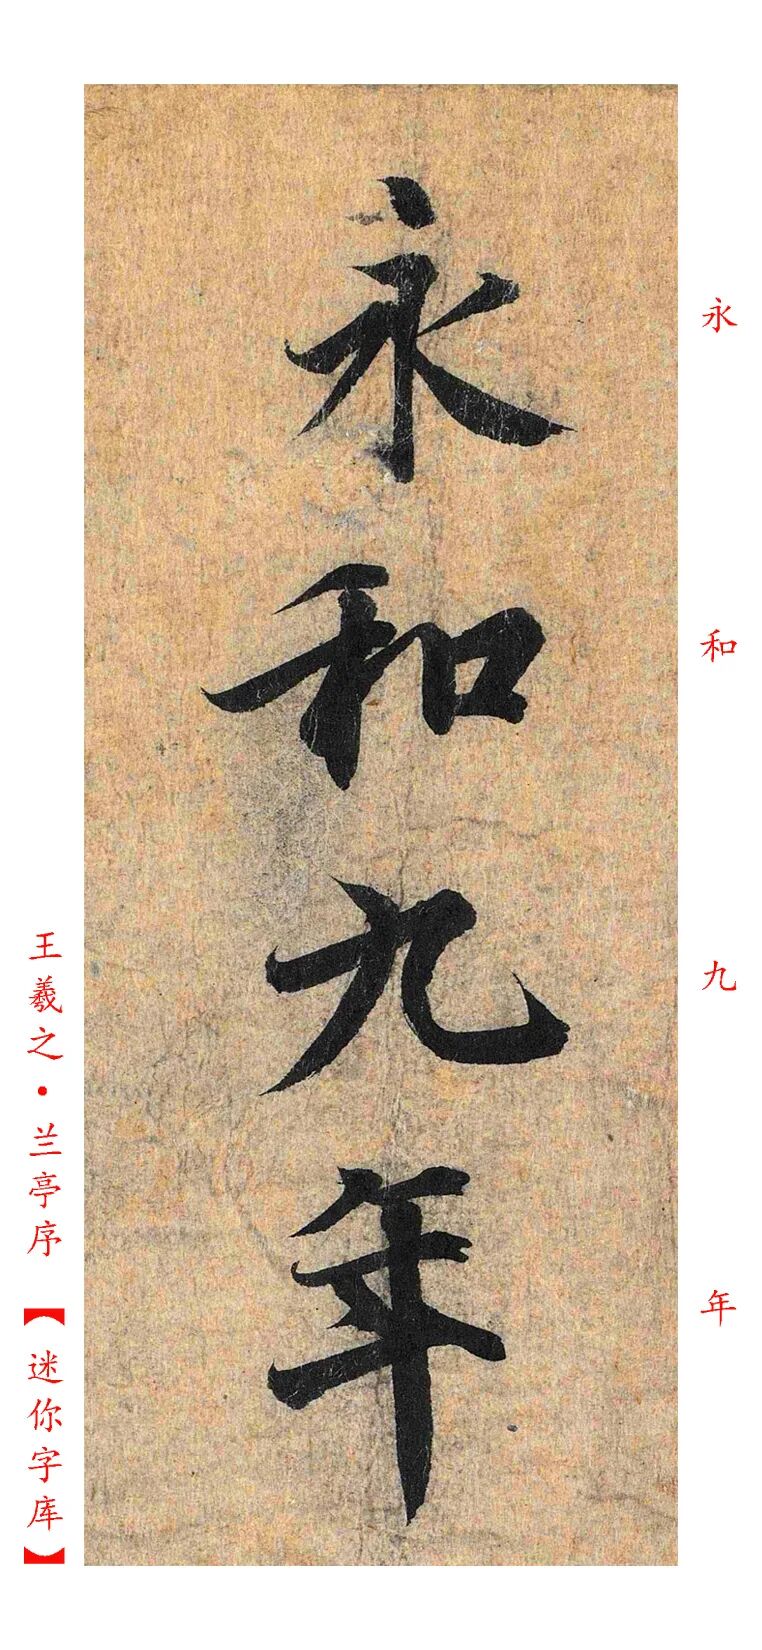 永和九年
永和九年
王羲之·兰亭序【迷你字库】